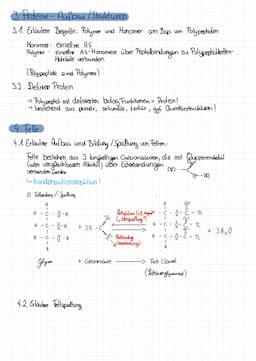 3. Proteine - Aufbau / Strukturen
3.1. Erläutere Begriffe Polymer und Monomer am Bsp. von Polypeptiden
Monomer: einzelne AS
Polymer: einzelne AS-Monomere über Peptidbindungen zu Polypeptidketten-
Moleküle verbunden
(Polypeptide sind Polymere)
3.2. Definier Protein
→ Polypeptid mit definierten biolog. Funktionen = Protein!
→ bestehend aus primär, sekundär, tertiär, ggf. Quartärstrukturen!
4. Fette
4.1 Erläutere Aufbau und Bildung / Spaltung von Fetten.
Fette bestehen aus 3 langkettigen Carbonsäuren, die mit Glycerinmolekül
(oder vergleichbarem Alkohol) über Esterbindungen
verbunden werden
↳ Kondensationsreaktion!
Fettbildung / -Spaltung
H - C - O - H
H - C - O - H + 3R -
H - C - O - H
+ 3 H₂O
Glycerin + Carbonsäure → Fett (Ester)
4.2. Erläutere Fettspaltung